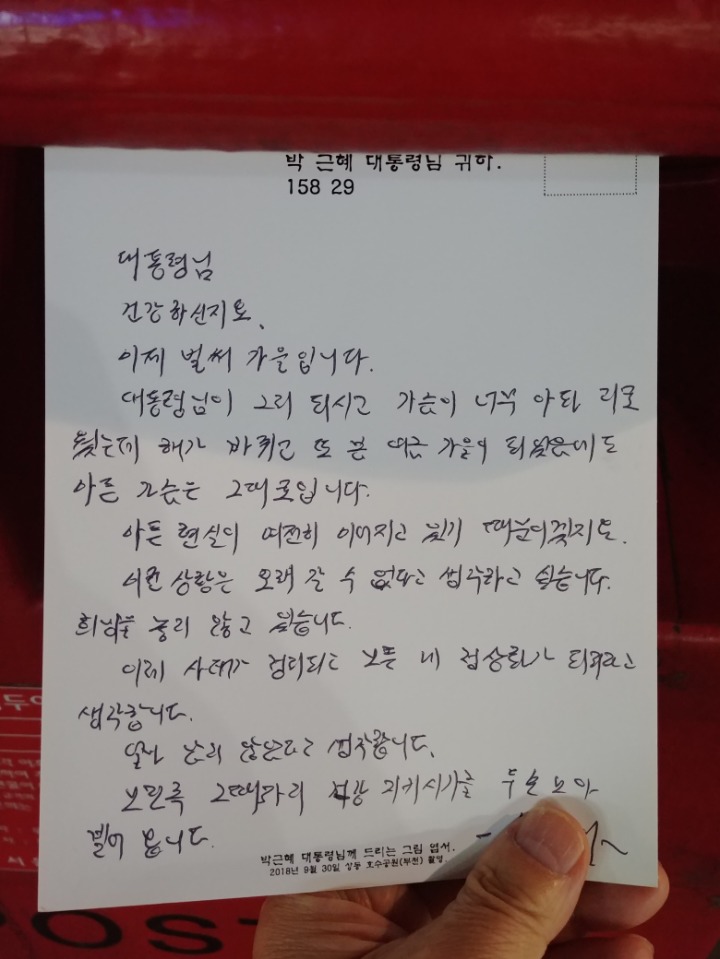 박 근혜 대통령님 귀하.
158 29
대통령님
건강하신지요.
이제 벌써 가을입니다.
대통령님이 그리 되시고 가슴이 너무 아파 괴로
웠는데 해가 바뀌고 또 한 여름 가을이 되었음에도
아픈 가슴은 그대로입니다.
아픈 현실이 여전히 이어지고 있기 때문이겠지요.
이런 상황은 오래 갈 수 없다고 생각하고 싶습니다.
희망을 놓지 않고 있습니다.
이제 사태가 정리되고 모든 게 정상화가 되리라고
생각합니다.
얼마 남지 않았다고 생각합니다.
그때까지 건강 지키시기를 두손 모아
빌어 봅니다.
박근혜 대통령님께 드리는 그림 엽서.
2018년 9월 30일 상동 호수공원(부천) 촬영.